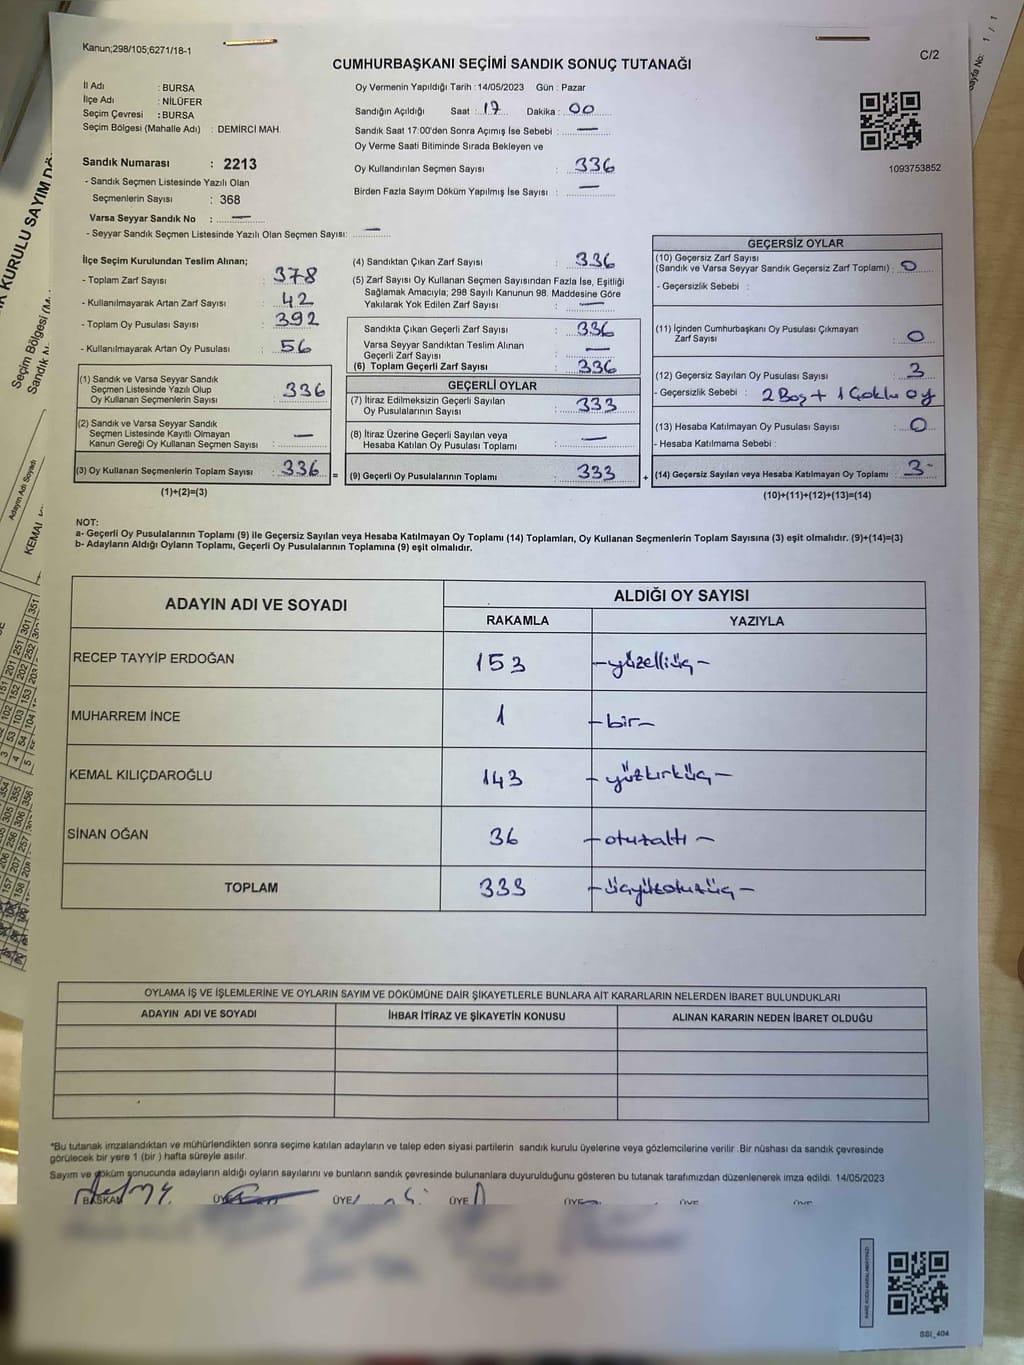 Kanun;298/105;6271/18-1
C/2
CUMHURBAŞKANI SEÇİMİ SANDIK SONUÇ TUTANAĞI
İl Adı : BURSA
İlçe Adı : NİLÜFER
Seçim Çevresi : BURSA
Seçim Bölgesi (Mahalle Adı) : DEMİRCİ MAH.
Sandık Numarası : 2213
- Sandık Seçmen Listesinde Yazılı Olan
Seçmenlerin Sayısı : 368
Varsa Seyyar Sandık No : —
- Seyyar Sandık Seçmen Listesinde Yazılı Olan Seçmen Sayısı: —
Oy Vermenin Yapıldığı Tarih : 14/05/2023 Gün : Pazar
Sandığın Açıldığı Saat : 17 Dakika : 00
Sandık Saat 17:00'den Sonra Açımış İse Sebebi : —
Oy Verme Saati Bitiminde Sırada Bekleyen ve
Oy Kullandırılan Seçmen Sayısı : 336
Birden Fazla Sayım Döküm Yapılmış İse Sayısı : —
1093753852
İlçe Seçim Kurulundan Teslim Alınan;
- Toplam Zarf Sayısı : 378
- Kullanılmayarak Artan Zarf Sayısı : 42
- Toplam Oy Pusulası Sayısı : 392
- Kullanılmayarak Artan Oy Pusulası : 56
(1) Sandık ve Varsa Seyyar Sandık
Seçmen Listesinde Yazılı Olup
Oy Kullanan Seçmenlerin Sayısı : 336
(2) Sandık ve Varsa Seyyar Sandık
Seçmen Listesinde Kayıtlı Olmayan
Kanun Gereği Oy Kullanan Seçmen Sayısı : —
(3) Oy Kullanan Seçmenlerin Toplam Sayısı : 336 =
(1)+(2)=(3)
(4) Sandıktan Çıkan Zarf Sayısı : 336
(5) Zarf Sayısı Oy Kullanan Seçmen Sayısından Fazla İse, Eşitliği
Sağlamak Amacıyla; 298 Sayılı Kanunun 98. Maddesine Göre
Yakılarak Yok Edilen Zarf Sayısı : —
Sandıkta Çıkan Geçerli Zarf Sayısı : 336
Varsa Seyyar Sandıktan Teslim Alınan
Geçerli Zarf Sayısı : —
(6) Toplam Geçerli Zarf Sayısı : 336
GEÇERLİ OYLAR
(7) İtiraz Edilmeksizin Geçerli Sayılan
Oy Pusulalarının Sayısı : 333
(8) İtiraz Üzerine Geçerli Sayılan veya
Hesaba Katılan Oy Pusulası Toplamı : —
(9) Geçerli Oy Pusulalarının Toplamı : 333 +
GEÇERSİZ OYLAR
(10) Geçersiz Zarf Sayısı
(Sandık ve Varsa Seyyar Sandık Geçersiz Zarf Toplamı) : 0
- Geçersizlik Sebebi :
(11) İçinden Cumhurbaşkanı Oy Pusulası Çıkmayan
Zarf Sayısı : 0
(12) Geçersiz Sayılan Oy Pusulası Sayısı : 3
- Geçersizlik Sebebi : 2 Boş + 1 Çoklu oy
(13) Hesaba Katılmayan Oy Pusulası Sayısı : 0
- Hesaba Katılmama Sebebi :
(14) Geçersiz Sayılan veya Hesaba Katılmayan Oy Toplamı : 3
(10)+(11)+(12)+(13)=(14)
NOT:
a- Geçerli Oy Pusulalarının Toplamı (9) ile Geçersiz Sayılan veya Hesaba Katılmayan Oy Toplamı (14) Toplamları, Oy Kullanan Seçmenlerin Toplam Sayısına (3) eşit olmalıdır. (9)+(14)=(3)
b- Adayların Aldığı Oyların Toplamı, Geçerli Oy Pusulalarının Toplamına (9) eşit olmalıdır.
ADAYIN ADI VE SOYADI ALDIĞI OY SAYISI
RAKAMLA YAZIYLA
RECEP TAYYİP ERDOĞAN 153 –yüzelliüç–
MUHARREM İNCE 1 –bir–
KEMAL KILIÇDAROĞLU 143 –yüzkırküç–
SİNAN OĞAN 36 –otuzaltı–
TOPLAM 333 –üçyüzotuzüç–
OYLAMA İŞ VE İŞLEMLERİNE VE OYLARIN SAYIM VE DÖKÜMÜNE DAİR ŞİKAYETLERLE BUNLARA AİT KARARLARIN NELERDEN İBARET BULUNDUKLARI
ADAYIN ADI VE SOYADI İHBAR İTİRAZ VE ŞİKAYETİN KONUSU ALINAN KARARIN NEDEN İBARET OLDUĞU
*Bu tutanak imzalandıktan ve mühürlendikten sonra seçime katılan adayların ve talep eden siyasi partilerin sandık kurulu üyelerine veya gözlemcilerine verilir .Bir nüshası da sandık çevresinde
görülecek bir yere 1 (bir ) hafta süreyle asılır.
Sayım ve döküm sonucunda adayların aldığı oyların sayılarını ve bunların sandık çevresinde bulunanlara duyurulduğunu gösteren bu tutanak tarafımızdan düzenlenerek imza edildi. 14/05/2023
BAŞKAN ÜYE ÜYE ÜYE ÜYE ÜYE ÜYE
SSI_404